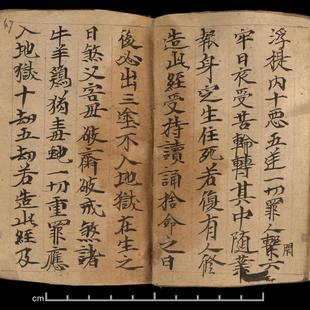 浮提内十惡五逆一切罪人繫閉六
牢日夜受苦輪轉其中隨業
報身定生住死若復有人修
造此經受持讀誦捨命之日
後必出三塗不入地獄在生之
日煞父害母破齋破戒煞諸
牛羊鷄狗毒虵一切重罪應
入地獄十劫五劫若造此經及
cm